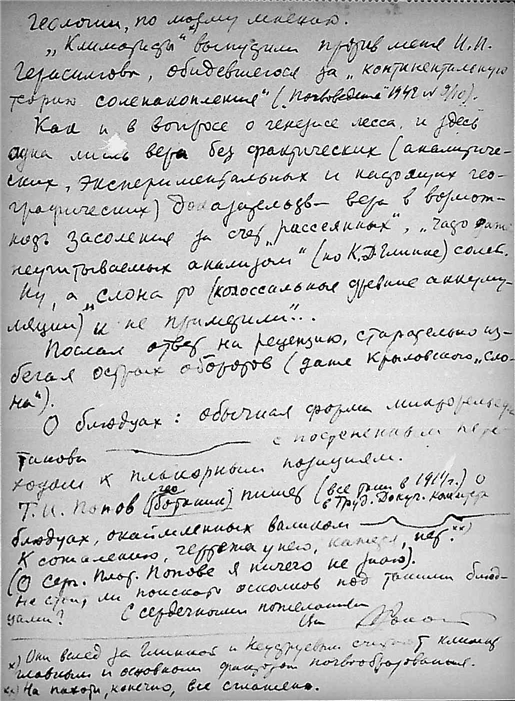 геологии, по моему мнению.
„Климатиды" выпустили против меня И.П.
Герасимова, обидевшегося за „континентальную
теорию соленакопления" („Почвоведение" 1942 № 9/10).
Как и в вопросе о генезисе лесса, и здесь
одна лишь вера без фактических (аналитиче-
ских, экспериментальных и настоящих гео-
графических) доказательств – вера в возмож-
ность засоления за счет „рассеянных", „часто даже
неучитываемых анализом" (по К.Д. Глинке) солей.
Ну, а „слона то (колоссальные древние аккуму-
ляции) и не приметили"..
Послал ответ на рецензию, старательно из-
бегая острых оборотов (даже Крыловского „сло-
на").
О блюдцах: обычная форма микрорельефа
такова с постепенным пере-
ходом к плакорным позициям.
Т.И. Попов (геоботаник) пишет (все там в 1914 г.) о
в Труд. Докуч. Комитета
блюдцах, окаймленных валиком хх)
К сожалению, чертежа у него, кажется, нет.
(О Серг. Плат. Попове я ничего не знаю).
Не стоит ли поискать осколков под такими блюд-
цами?
С сердечными пожеланиями
Ваш
х) Они вслед за Глинкой и Неуструевым считают климат
главным и основным фактором почвообразования.
хх) На пахоти, конечно, все сглажено.